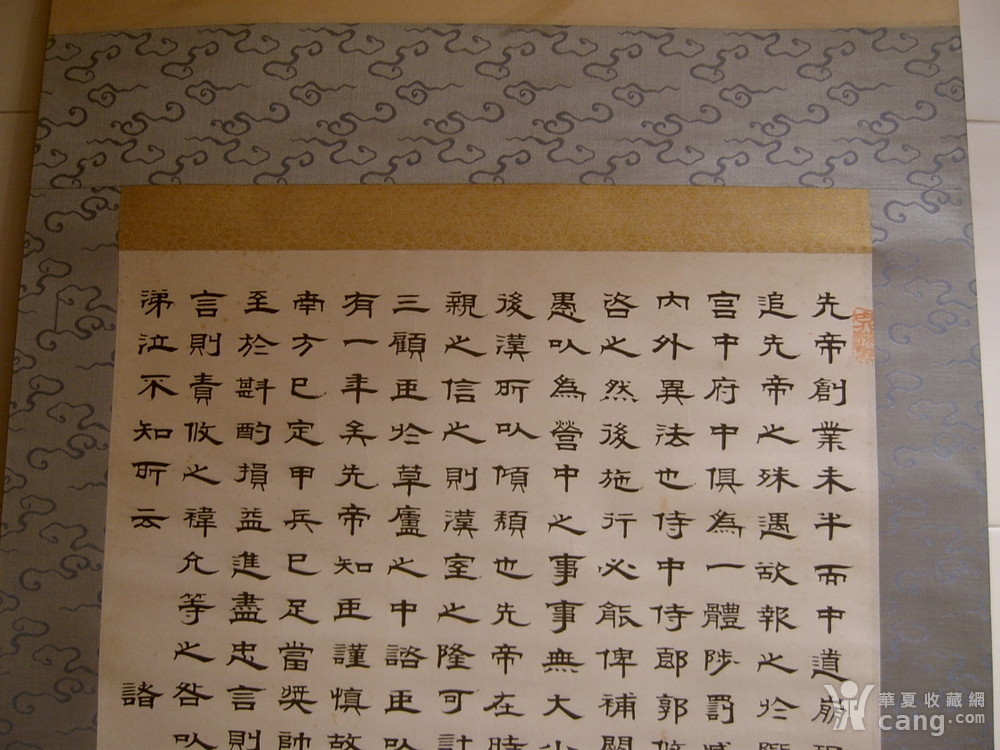 先帝創業未半而中道崩
追先帝之殊遇欲報之於
宮中府中俱為一體陟罰臧
內外異法也侍中侍郎郭攸
咨之然後施行必能俾補闕
愚以為營中之事事無大小
後漢所以傾頹也先帝在時
親之信之則漢室之隆可計
三顧臣於草廬之中諮臣以
有一年矣先帝知臣謹慎故
南方已定甲兵已足當奬帥
至於斟酌損益進盡忠言則
言則責攸之禕允等之咎以
涕泣不知所云 諸
華夏收藏網
cang.com